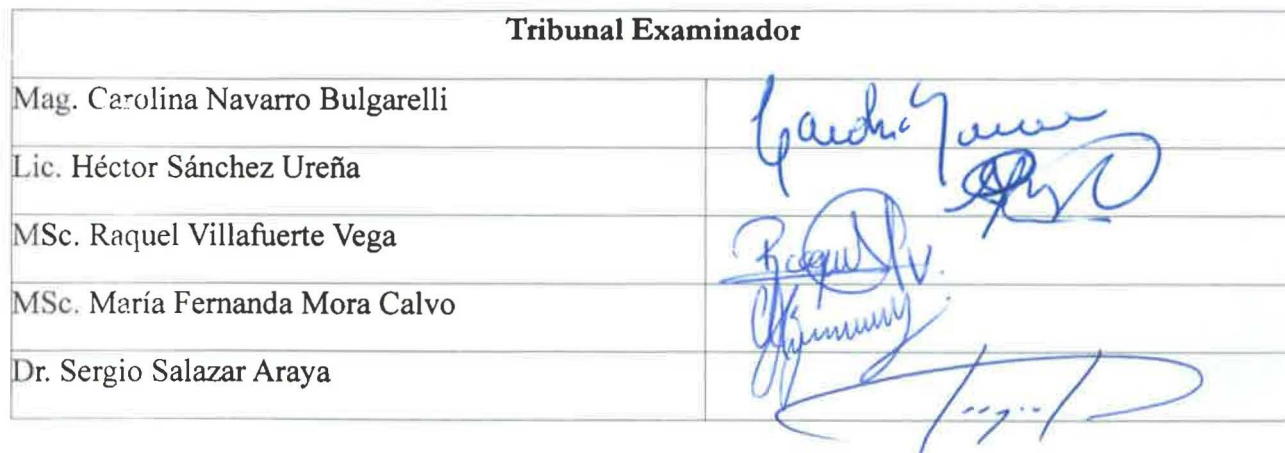 Tribunal Examinador
Mag. Carolina Navarro Bulgarelli
Lic. Héctor Sánchez Ureña
MSc. Raquel Villafuerte Vega
MSc. María Fernanda Mora Calvo
Dr. Sergio Salazar Araya